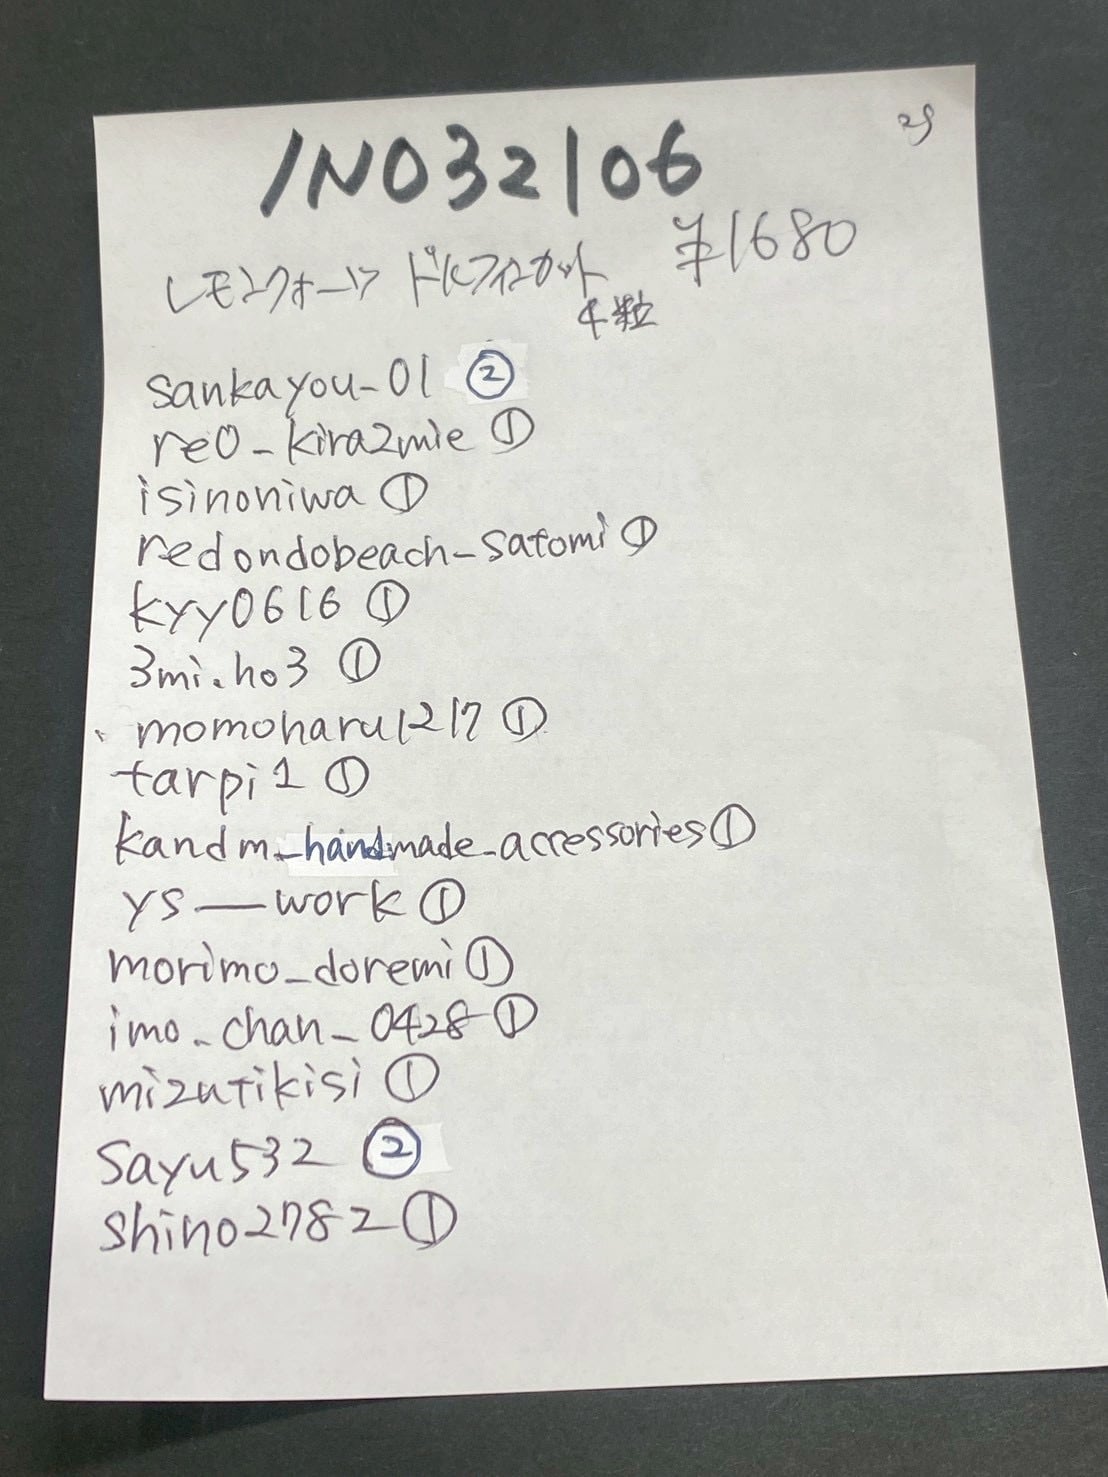 29
INO32106
¥1680
レモンクォーツ ドルフィンカット
4粒
sankayou-01 ②
re0_kira2mie ①
isinoniwa ①
redondobeach_satomi ①
kyy0616 ①
3mi.ho3 ①
momoharu1217 ①
tarpi1 ①
kandm_handmade_accessories ①
ys__work ①
morimo_doremi ①
imo_chan_0428 ①
mizutikisi ①
sayu532 ②
shino2782 ①